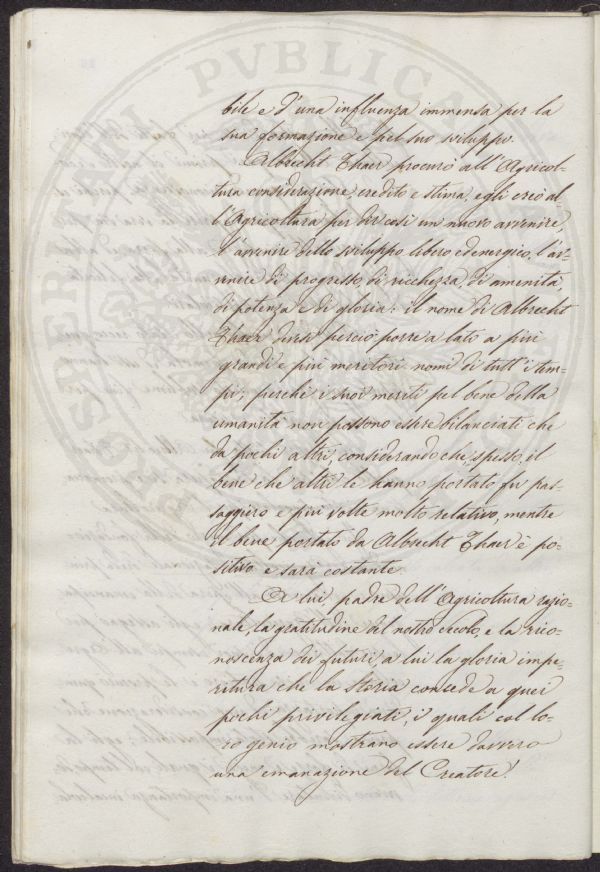 PROSPERITATI PVBLICAE
bile e d'una influenza immensa per la
sua formazione e pel suo sviluppo.
Albrecht Thaer procurò all'Agricol-
tura considerazione credito e stima, egli creò al-
l'Agricoltura per dir così un nuovo avvenire,
l'avvenire dello sviluppo libero ed energico, l'av-
venire di progresso, di ricchezza, di amenità,
di potenza e di gloria: il nome di Albrecht
Thaer devesi perciò porre a lato a più
grandi e più meritori nomi di tutt'i tem-
pi; perchè i suoi meriti pel bene della
umanità non possono essere bilanciati che
da pochi altri, considerando che spesso, il
bene che altri le hanno portato fu pas-
saggiero e più volte molto relativo, mentre
il bene portato da Albrecht Thaer è po-
sitivo e sarà costante.
A lui, padre dell'Agricoltura razio-
nale, la gratitudine dal nostro secolo, e la rico-
noscenza dei futuri, a lui la gloria impe-
ritura che la Storia concede a quei
pochi privilegiati, i quali col lo-
ro genio mostrano essere davvero
una emanazione del Creatore!